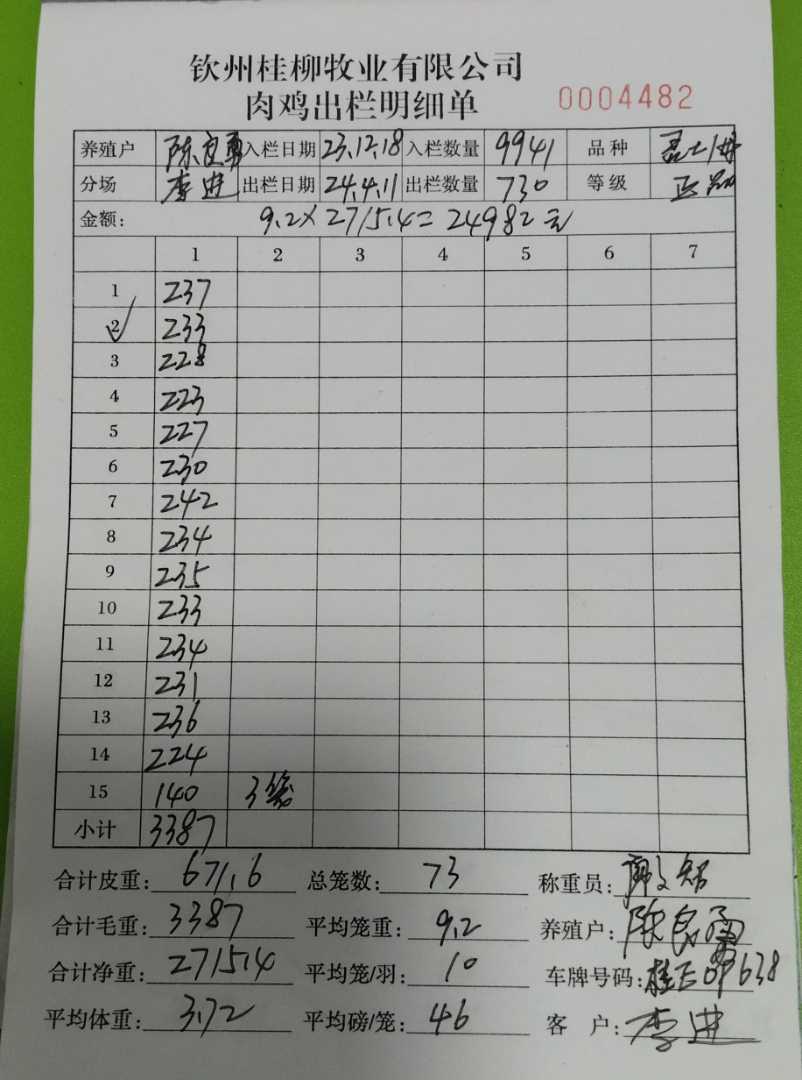 钦州桂柳牧业有限公司
肉鸡出栏明细单 0004482
养殖户 陈良勇 入栏日期 23.12.18 入栏数量 9941 品种
分场 李进 出栏日期 24.4.11 出栏数量 730 等级 正品
金额: 9.2×2715.4=24982元
1 2 3 4 5 6 7
1 237
2 233
3 228
4 223
5 227
6 230
7 242
8 234
9 235
10 233
11 234
12 231
13 236
14 224
15 140 3笼
小计 3387
合计皮重: 671.6 总笼数: 73 称重员:
合计毛重: 3387 平均笼重: 9.2 养殖户: 陈良勇
合计净重: 2715.4 平均笼/羽: 10 车牌号码:
平均体重: 3.72 平均磅/笼: 46 客 户: 李进